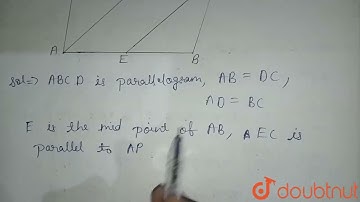 A E B
Sol⇒ ABCD is parallelogram, AB = DC,
AD = BC
E is the mid point of AB, AEC is
parallel to AP
doubtnut